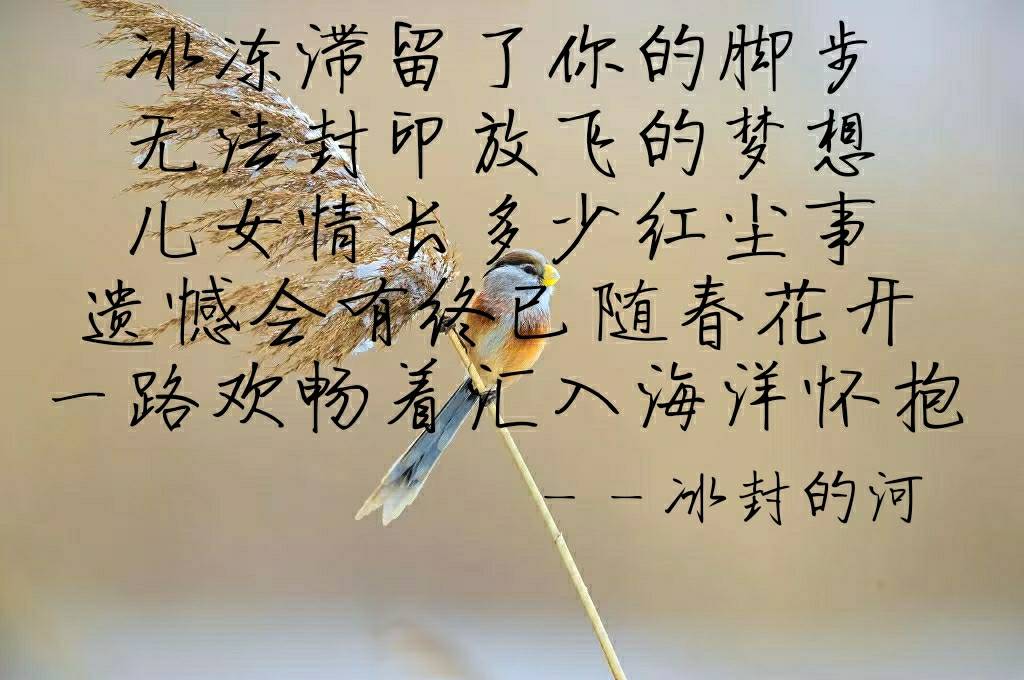 冰冻滞留了你的脚步
无法封印放飞的梦想
儿女情长多少红尘事
遗憾会有终已随春花开
一路欢畅着汇入海洋怀抱
——冰封的河